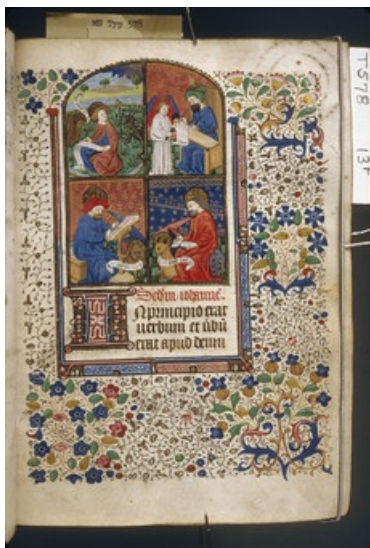 MS Typ 578
T578 13r
Scdm iohanne.
IN principio erat
uerbum et ūbū
erat apud deum